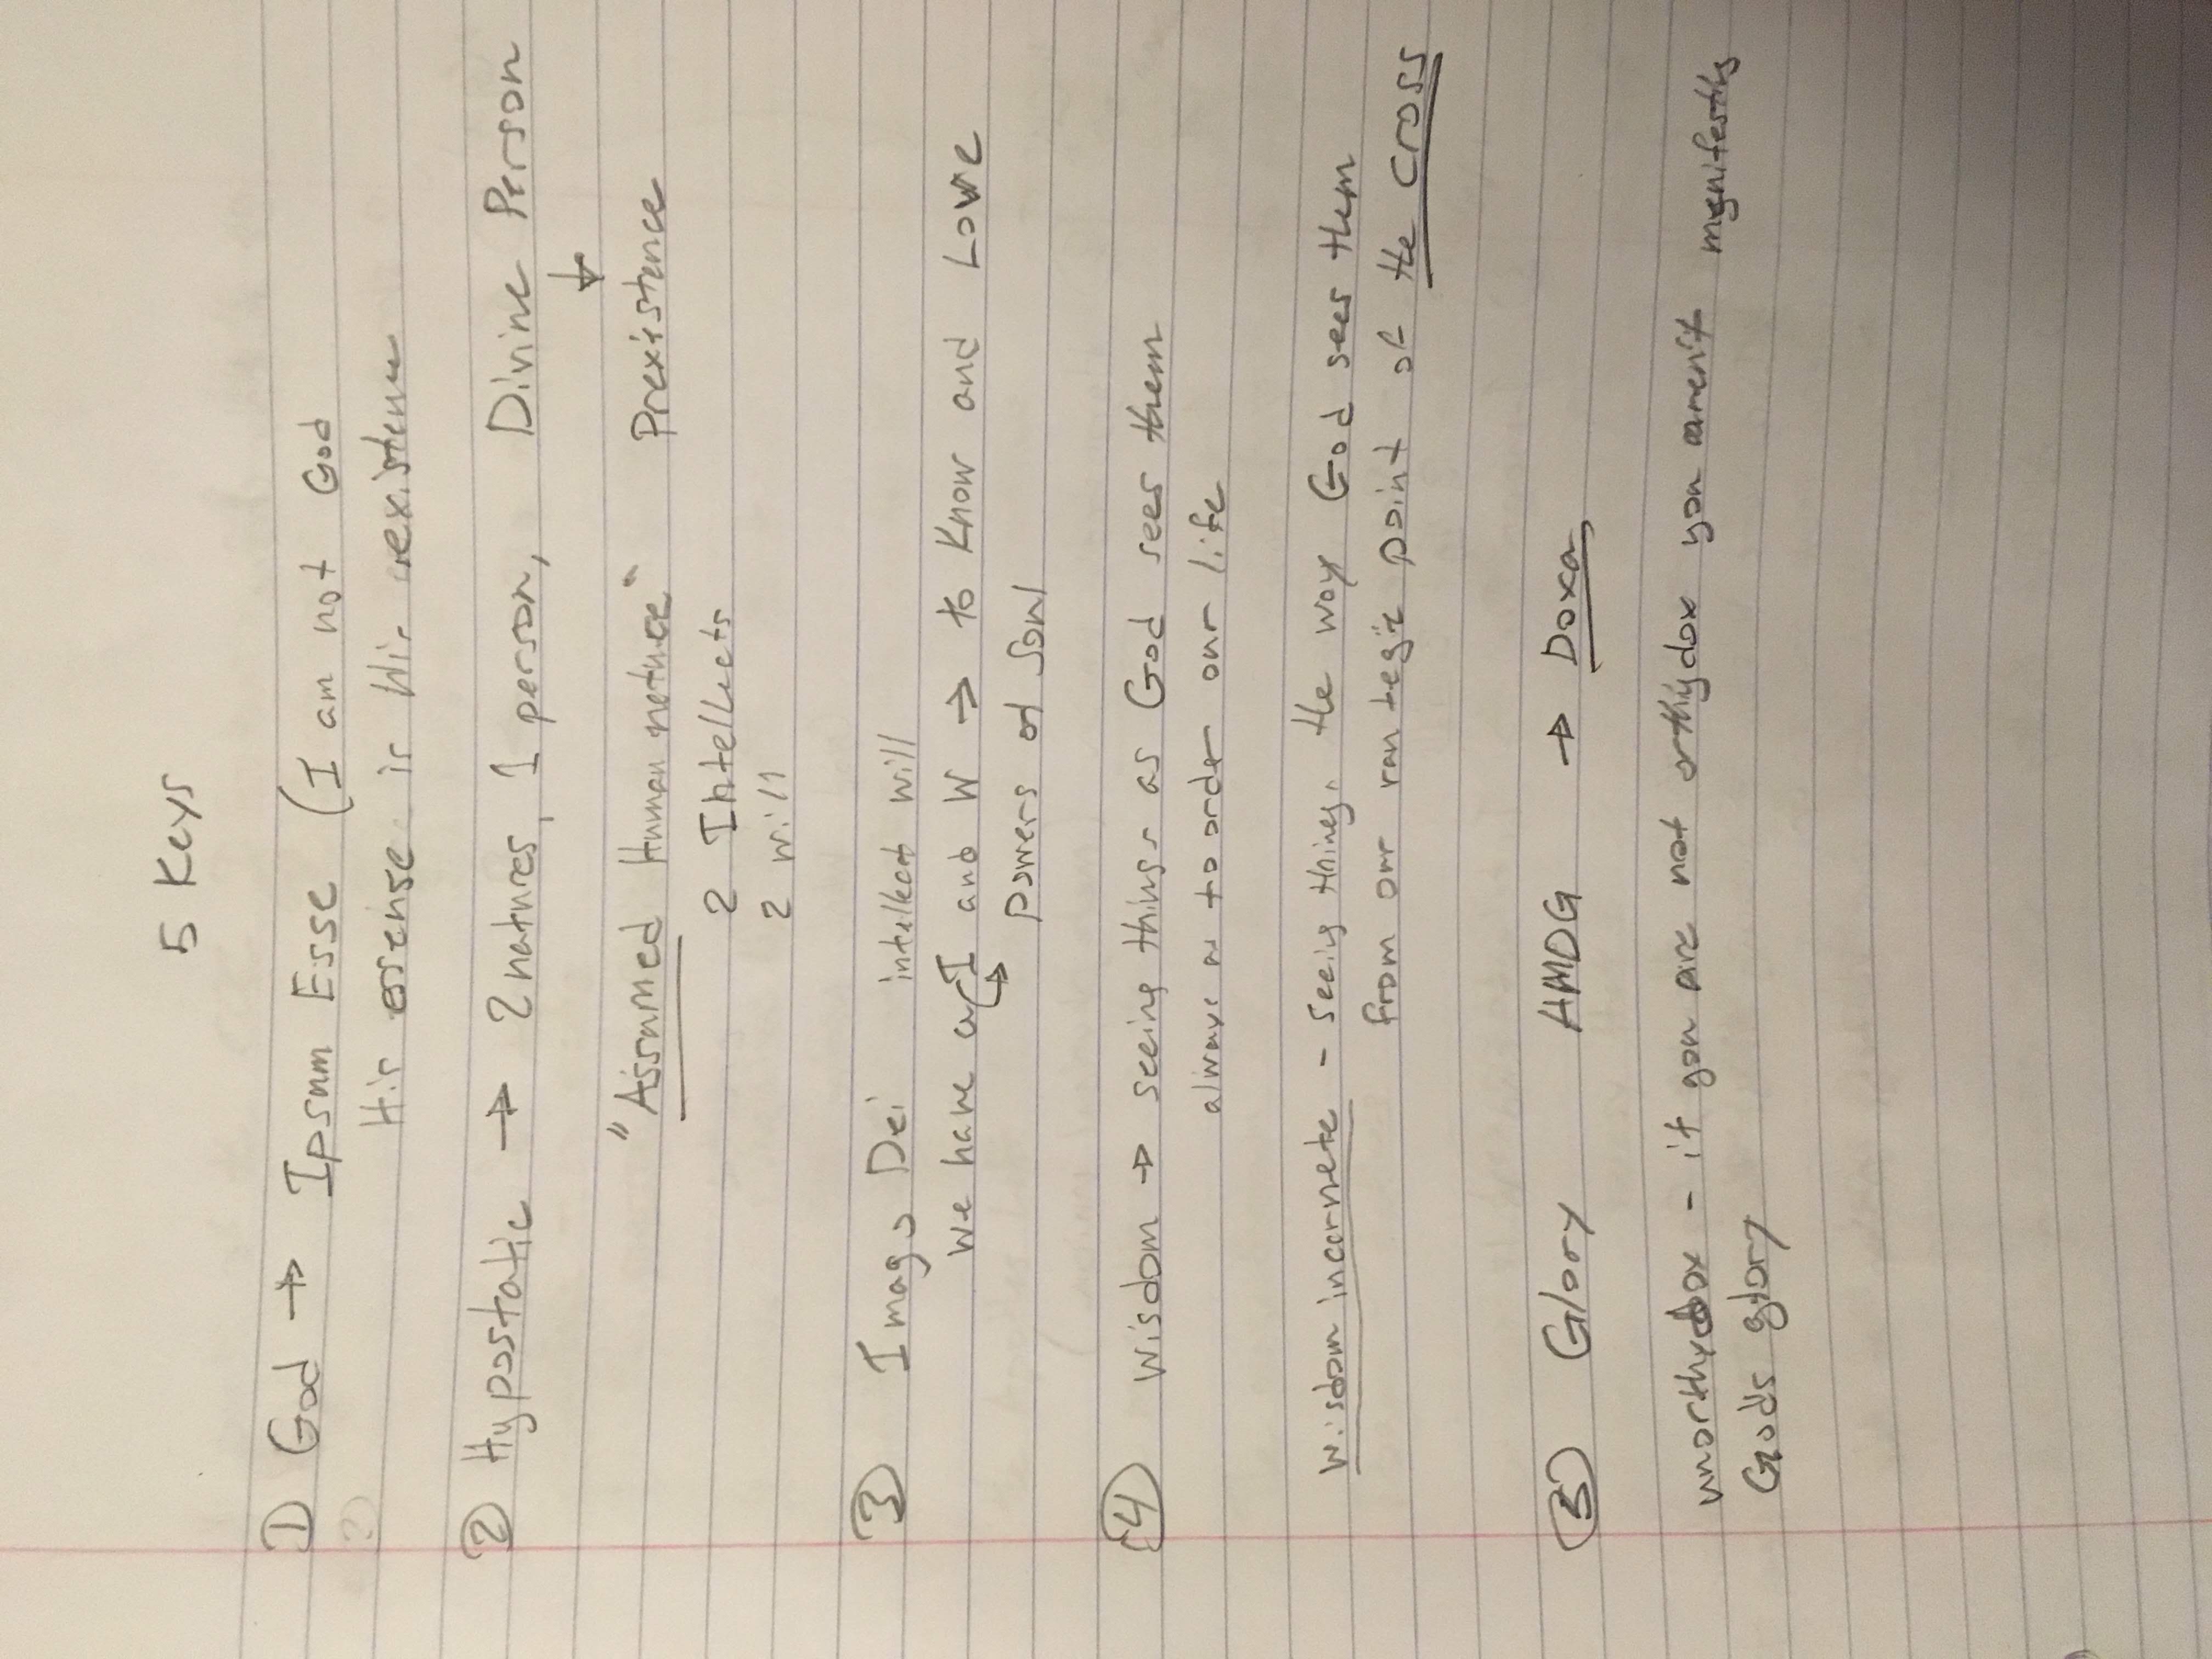 5 Keys
① God → Ipsum Esse (I am not God
His essense is His existence
② Hypostatic → 2 natures, 1 person, Divine Person
↓
"Assumed Human nature" Prexistence
2 Intellects
2 will
③ Imago Dei intellect will
we have a I and W → to Know and Love
powers of Soul
④ Wisdom → seeing things as God sees them
always to order our life
Wisdom incarnate - seeing things the way God sees them
from our vantegie point of the cross
⑤ Glory AMDG → Doxa
unorthydox - if you are not orthydox you arenit
Gods glory